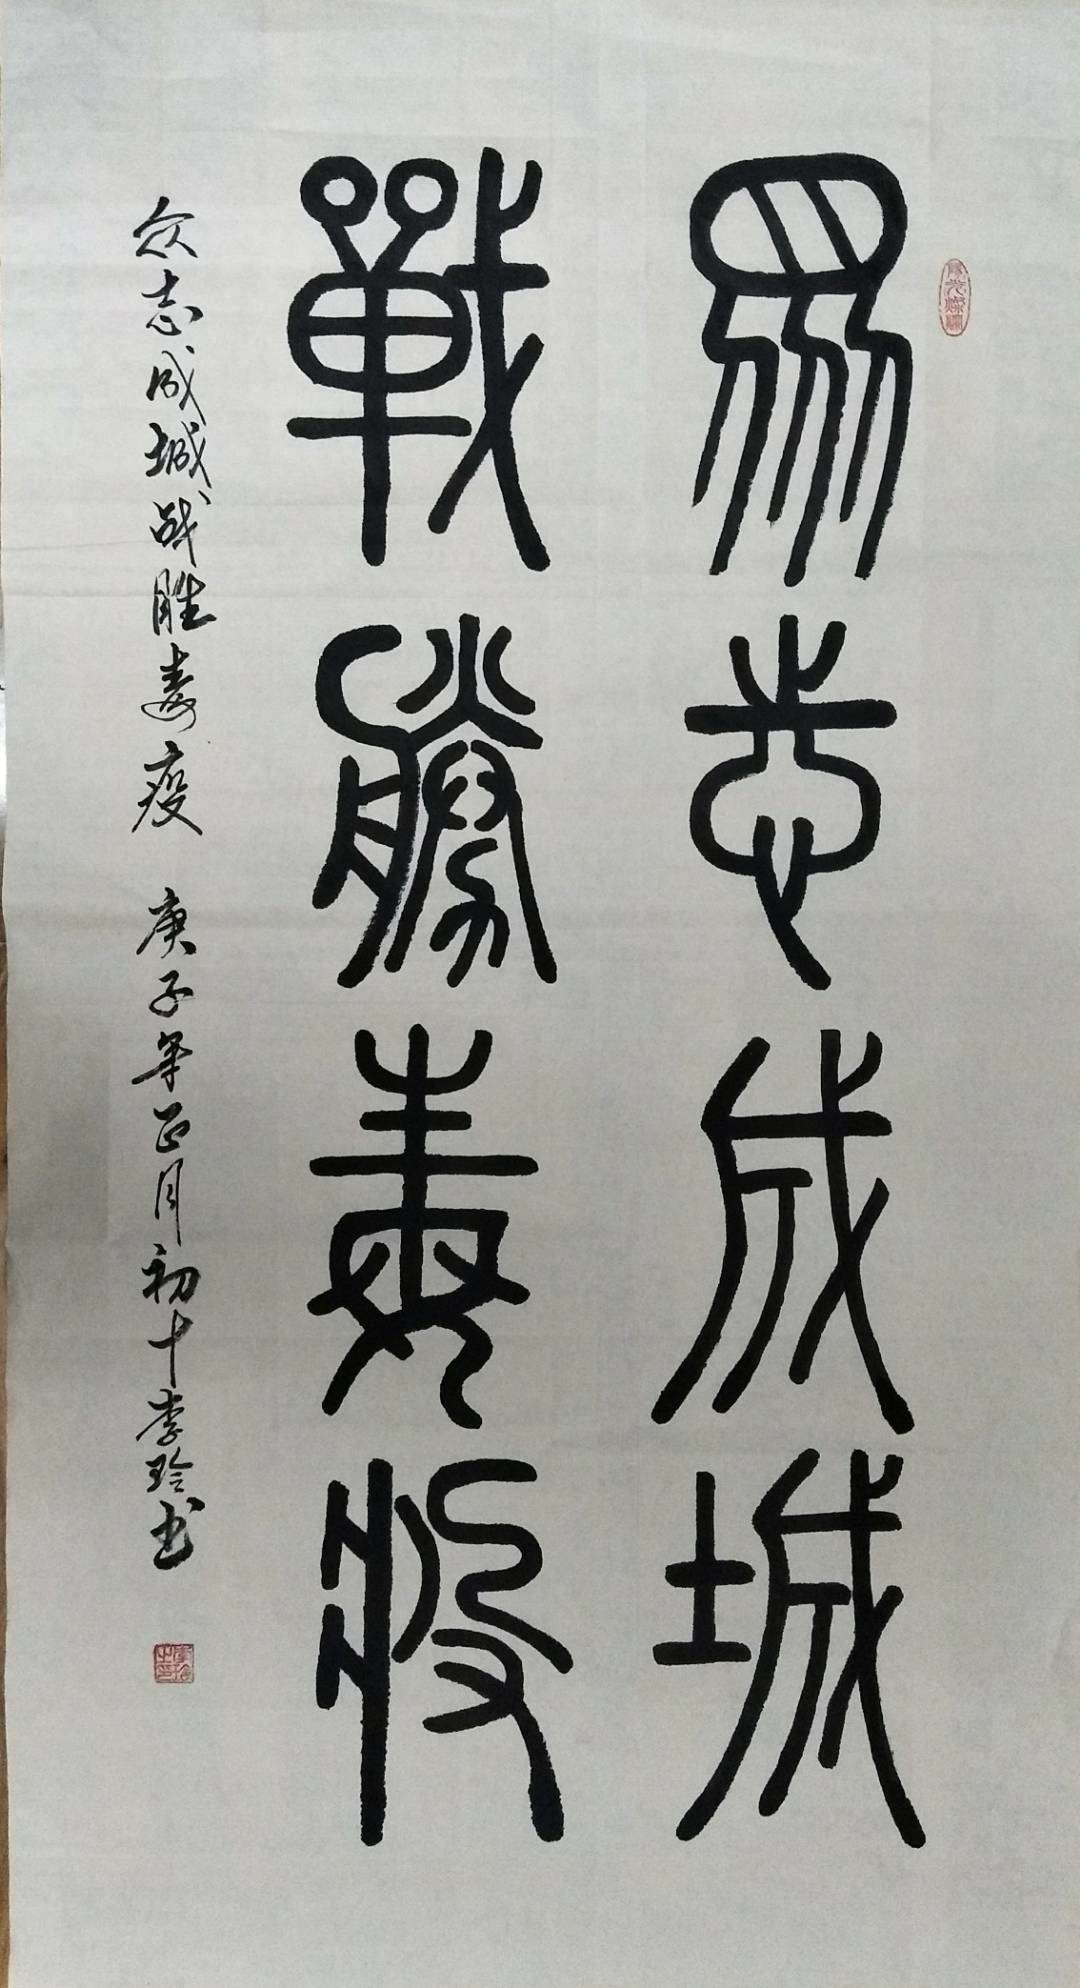 眾志成城
戰勝毒疫
众志成城战胜毒疫 庚子年正月初十李玲书